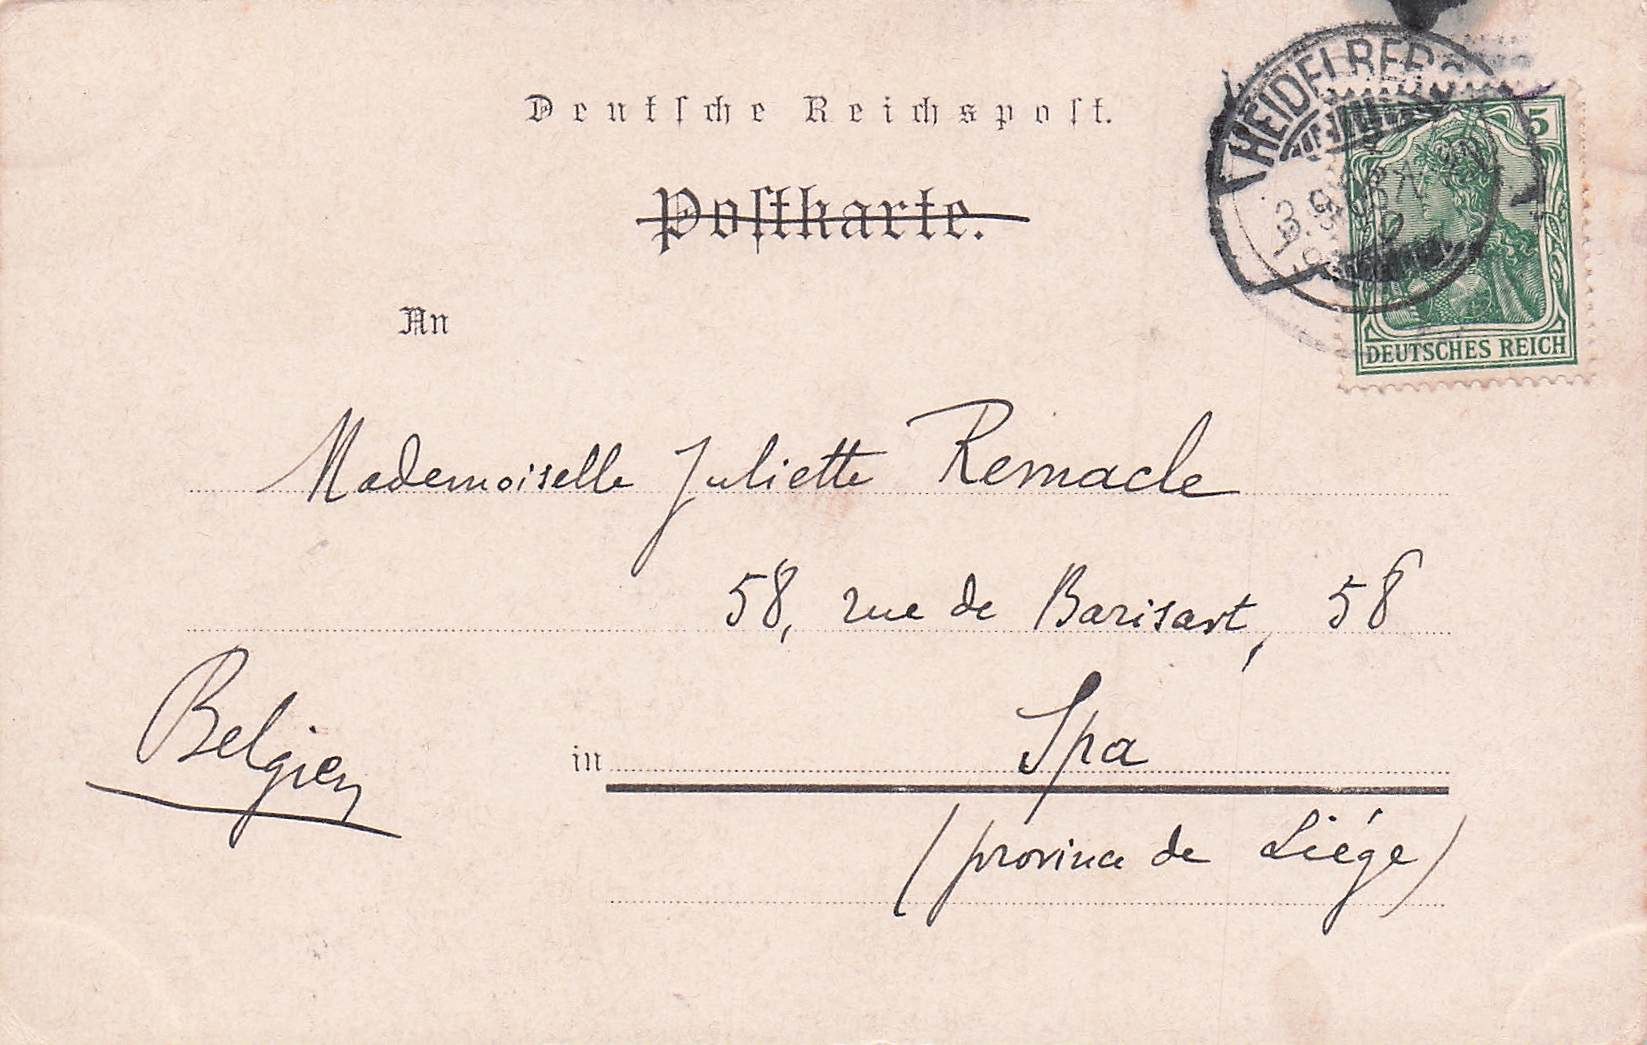 Deutsche Reichspost.
Postkarte.
HEIDELBERG
5
DEUTSCHES REICH
An
Mademoiselle Juliette Remacle
58, rue de Barisart, 58
Belgien
in Spa
(province de Liége)